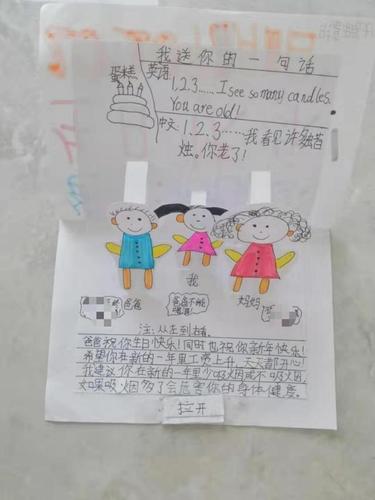 我送你的一句话
蛋糕
英语
1.2.3...... I see so many candles.
You are old!
中文
1.2.3......我看见许多蜡
烛。你老了!
我
爸爸
爸爸不能
喝酒!
妈妈
注:从左到右看。
爸爸祝你生日快乐!同时也祝你新年快乐!
希望你在新的一年里工资上升,天天都开心!
我建议你在新的一年里少吸烟或不吸烟,
如果吸烟多了会危害你的身体健康。
拉开